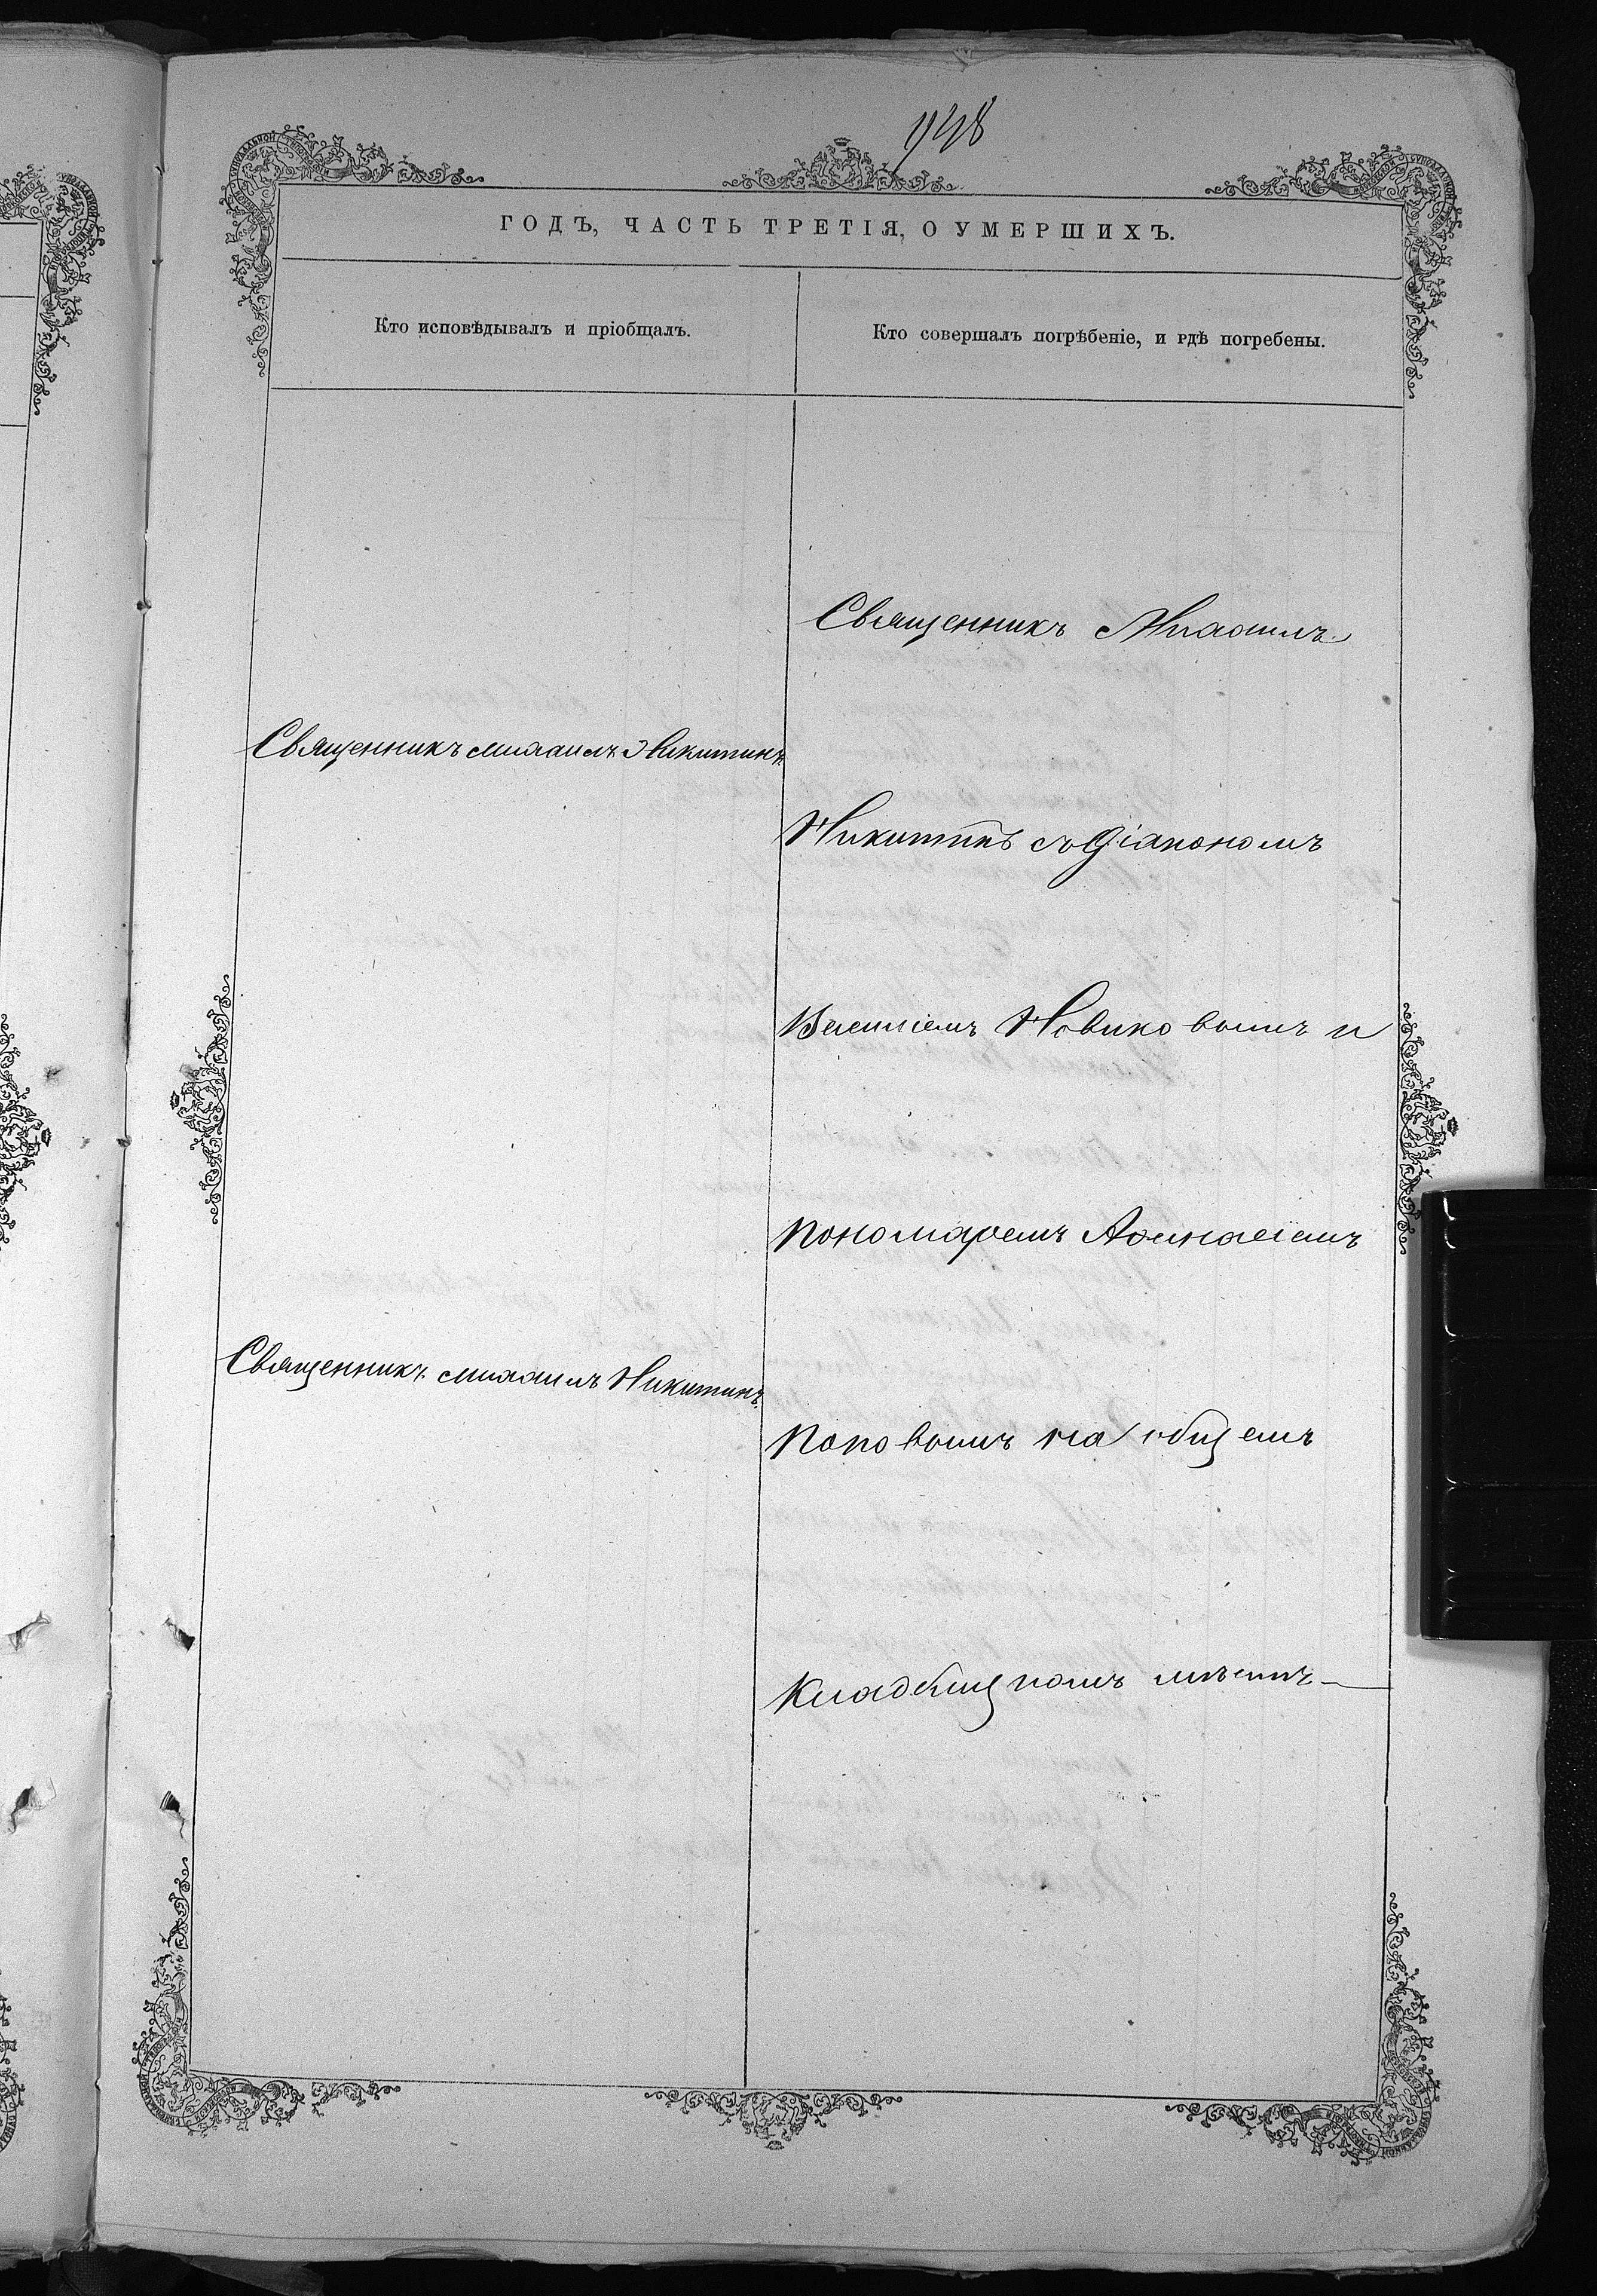 938
ГОДЪ, ЧАСТЬ ТРЕТІЯ, О УМЕРШИХЪ.
Кто исповѣдывалъ и пріобщалъ.
Кто совершалъ погрѣбеніе, и гдѣ погребены.
Священникъ Михаилъ Никитинъ
Священникъ Михаилъ Никитинъ
Священникъ Михаилъ
Никитинъ съ Діакономъ
Василіемъ Новиковымъ и
Пономаремъ Аѳанасіемъ
Поповымъ на общемъ
Кладбищномъ мѣстѣ